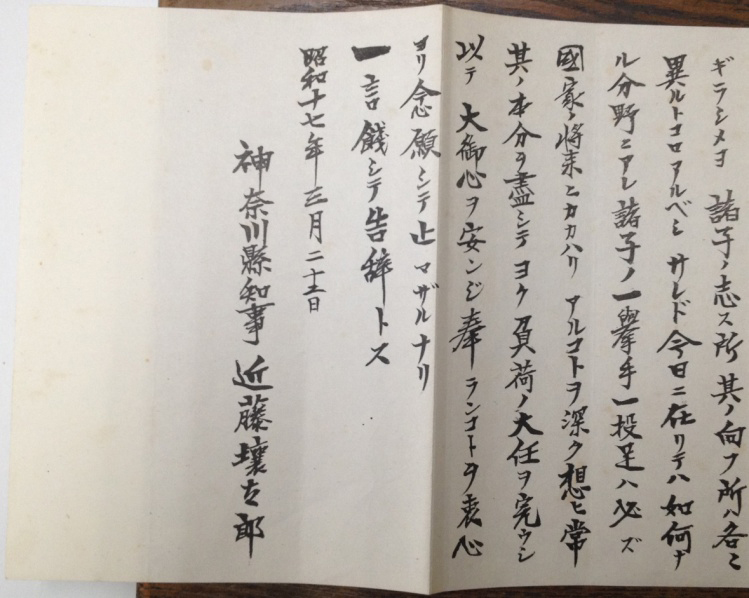 ギラシメヨ 諸子ノ志ス所 其ノ向フ所ハ各ミ
異ルトコロアルベシ サレド今日ニ在リテハ如何ナ
ル分野ニアレ諸子ノ一擧手一投足ハ必ズ
國家ノ將来ニカカハリ アルコトヲ深ク想ヒ常
其ノ本分ヲ盡シテ ヨク負荷ノ大任ヲ完ウシ
以テ 大御心ヲ安ンジ奉ランコトヲ衷心
ヨリ念願シテ止マザルナリ
一言餞シテ告辞トス
昭和十七年三月二十五日
神奈川縣知事 近藤壤太郎